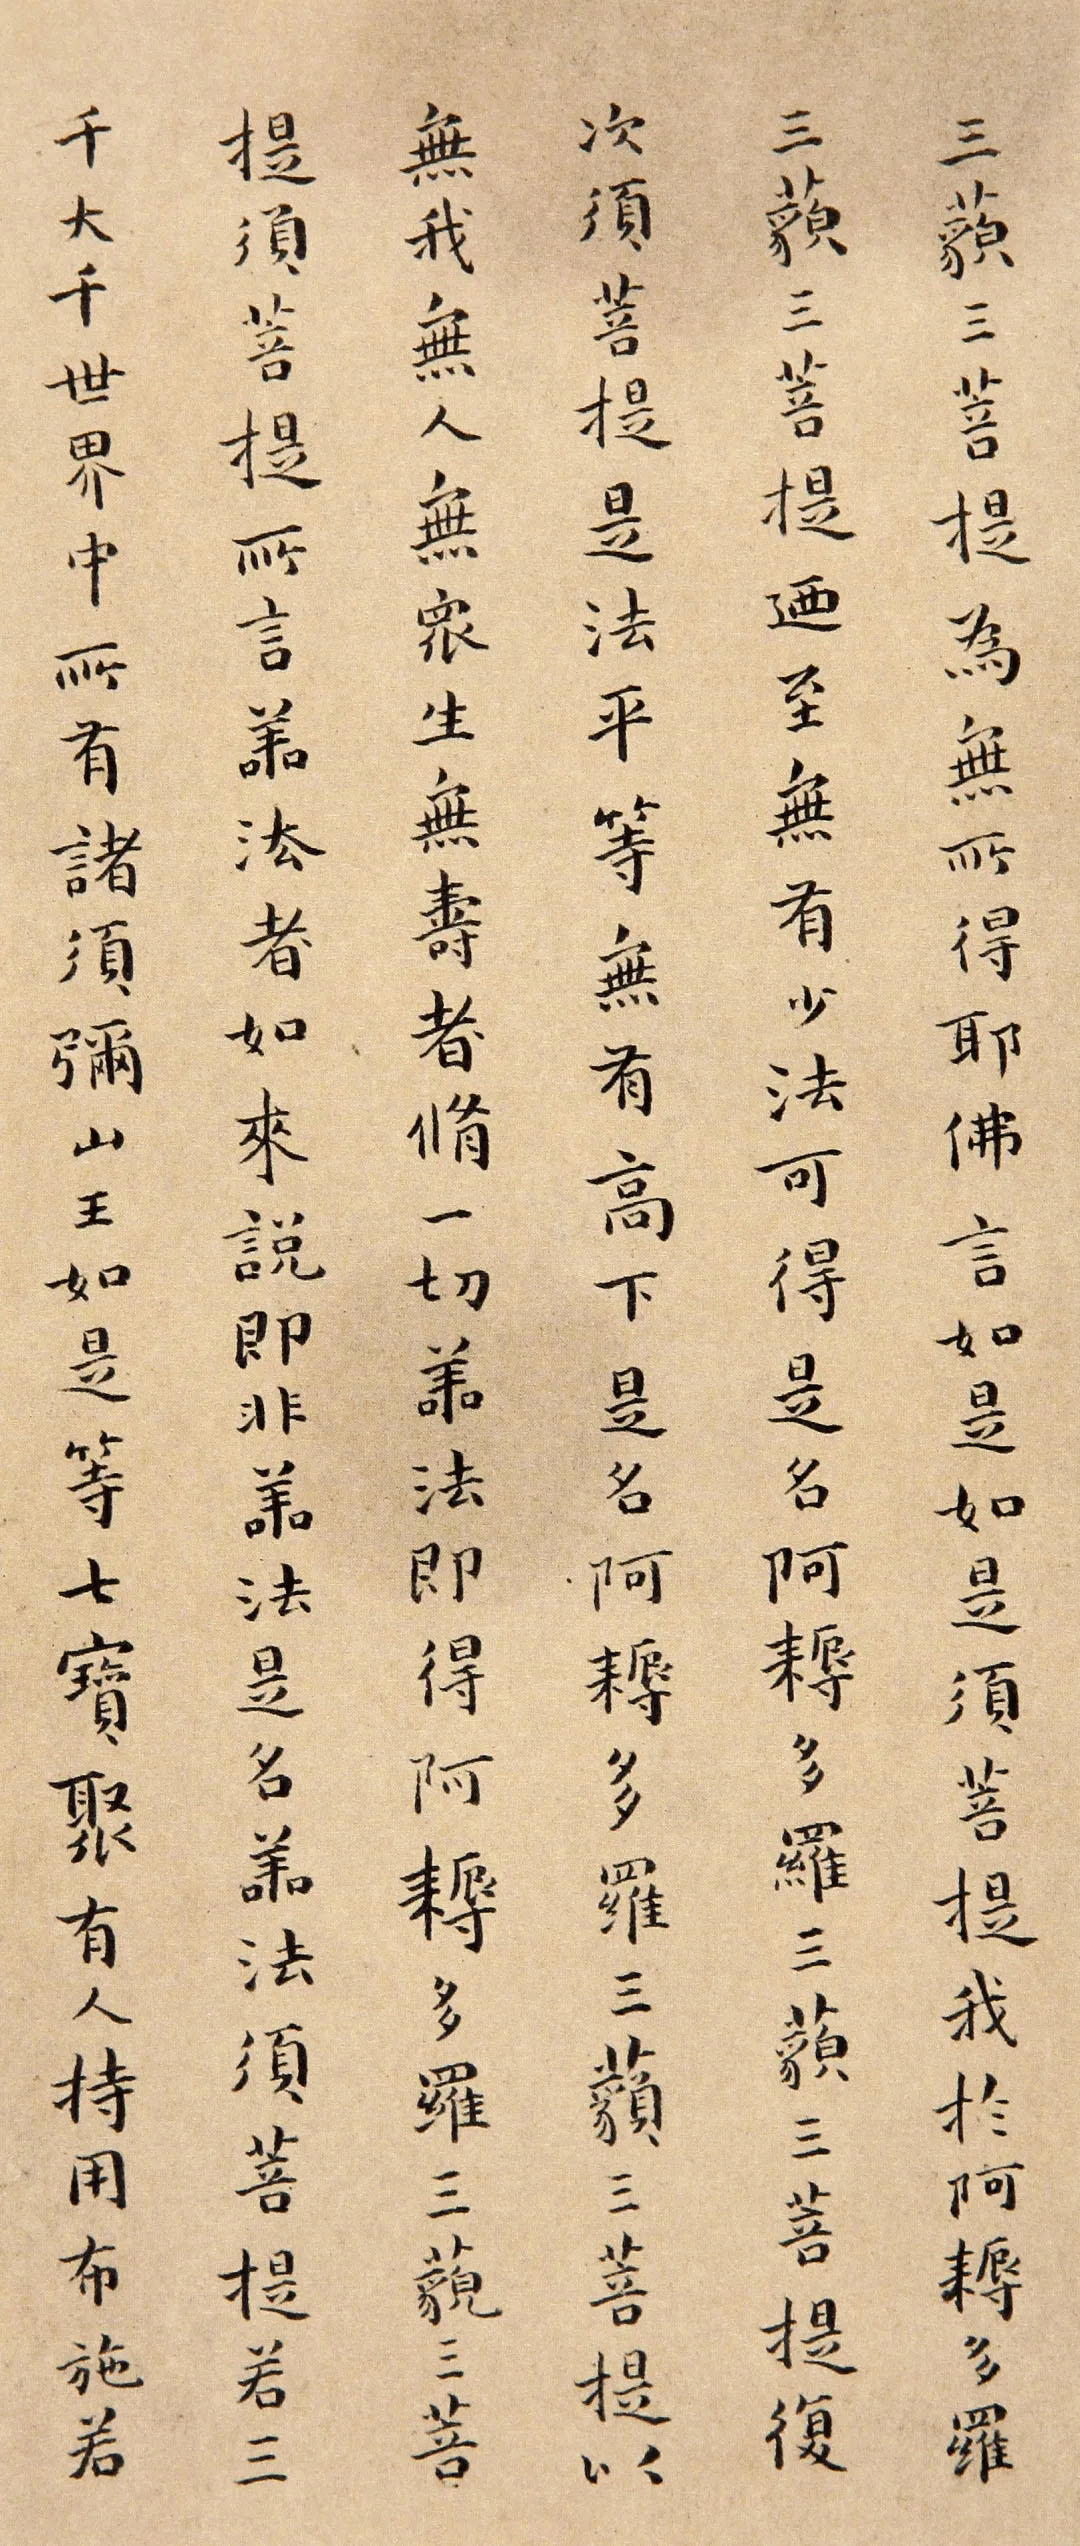 三藐三菩提為無所得耶佛言如是如是須菩提我於阿耨多羅
三藐三菩提廼至無有少法可得是名阿耨多羅三藐三菩提復
次須菩提是法平等無有高下是名阿耨多羅三藐三菩提以
無我無人無眾生無壽者脩一切善法即得阿耨多羅三藐三菩
提須菩提所言善法者如來說即非善法是名善法須菩提若三
千大千世界中所有諸須彌山王如是等七寶聚有人持用布施若